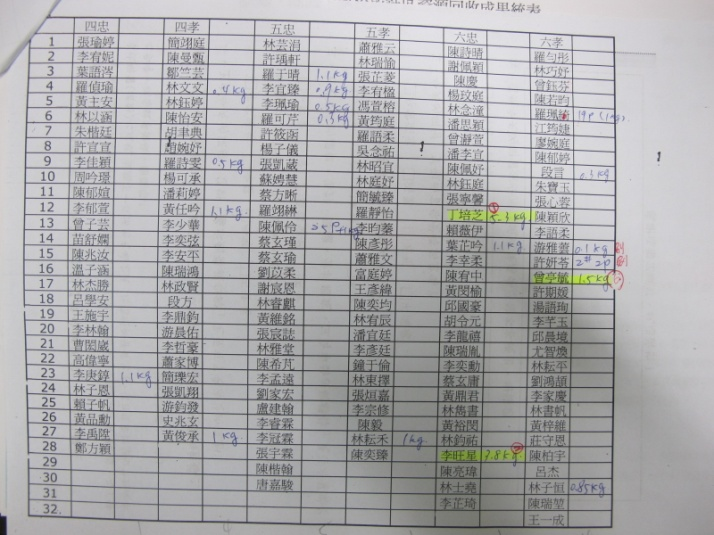 回收成果統表
四忠 四孝 五忠 五孝 六忠 六孝
1 張瑜婷 簡翊庭 林芸涓 蕭雅云 陳詩晴 羅勻彤
2 李宥妮 陳曼甄 許瑀軒 林瑞愉 謝佩穎 林巧妤
3 葉語涔 鄒竺芸 羅于晴 1.1kg 張芷菱 陳慶 曾鈺芬
4 羅偵瑜 林文文 0.4kg 李宜臻 0.9kg 李宥楹 楊玟庭 陳若昀
5 黃主安 林鈺婷 李珮瑜 0.5kg 馮萱榕 林念潼 羅珮綺
6 林以涵 陳怡安 羅可芹 0.3kg 黃筠庭 潘思穎 江筠婕
7 朱楷廷 胡聿典 許筱函 羅語柔 曾瀞萱 廖婉庭
8 許宜宣 趙婉妤 楊子儀 吳念祐 潘李宜 陳郁婷
9 李佳穎 羅詩雯 0.5kg 張凱葳 林昭宜 陳佩妤 段言 0.3kg
10 周吟璟 楊可承 蘇娉慧 林庭妤 林鈺庭 朱寶玉
11 陳郁媗 潘莉婷 蔡方晰 簡毓臻 張寧馨 張心蓉
12 李郁萱 黃任吟 1.1kg 羅翊綝 羅靜怡 丁培芝 5.3kg 陳穎欣
13 曾子芸 李少華 陳佩伶 李昀蓁 賴薇伊 李語柔
14 苗舒嫻 李奕弦 蔡玄瑾 陳彥彤 葉芷吟 1.1kg 游雅薰 0.1kg
15 陳兆汝 李安平 蔡玄瑜 蕭雅文 李幸柔 許妍苓
16 溫子涵 陳瑞鴻 劉苡柔 富庭婷 陳宥中 曾亭毓 1.5kg
17 林杰勝 林政賢 謝宸恩 王彥緯 黃閔楡 許期媛
18 呂學安 段方 林睿麒 陳奕均 邱國豪 湯語珣
19 王施宇 李鼎鈞 黃維銘 林宥辰 胡令元 李芊玉
20 李林翰 游晨佑 張宸誌 潘宜廷 李龍禧 邱晨境
21 曹閎崴 李哲豪 林雅堂 李彥廷 陳瑞胤 尤智煥
22 高偉寧 蕭家博 陳希芃 鍾于倫 李奕勳 林耘平
23 李庚錞 1.1kg 簡璨宏 李孟遠 林東擇 蔡玄庸 劉鴻頡
24 林子恩 張凱翔 劉家宏 張烜嘉 黃鼎君 李家慶
25 賴子帆 游鈞發 盧建翰 李宗修 林雋書 林書帆
26 黃品勳 史兆玄 李睿霖 陳毅 黃裕閔 黃梓維
27 李禹陞 黃俊承 1kg 李冠霖 林耘禾 1kg 林鈞祐 莊守恩
28 鄭方穎 張宇霖 陳奕臻 李旺星 陳柏宇
29 陳楷翰 陳亮瑋 呂杰
30 唐嘉駿 林士堯 林子恒 0.85kg
31 李芷琦 陳瑞堃
32. 王一成